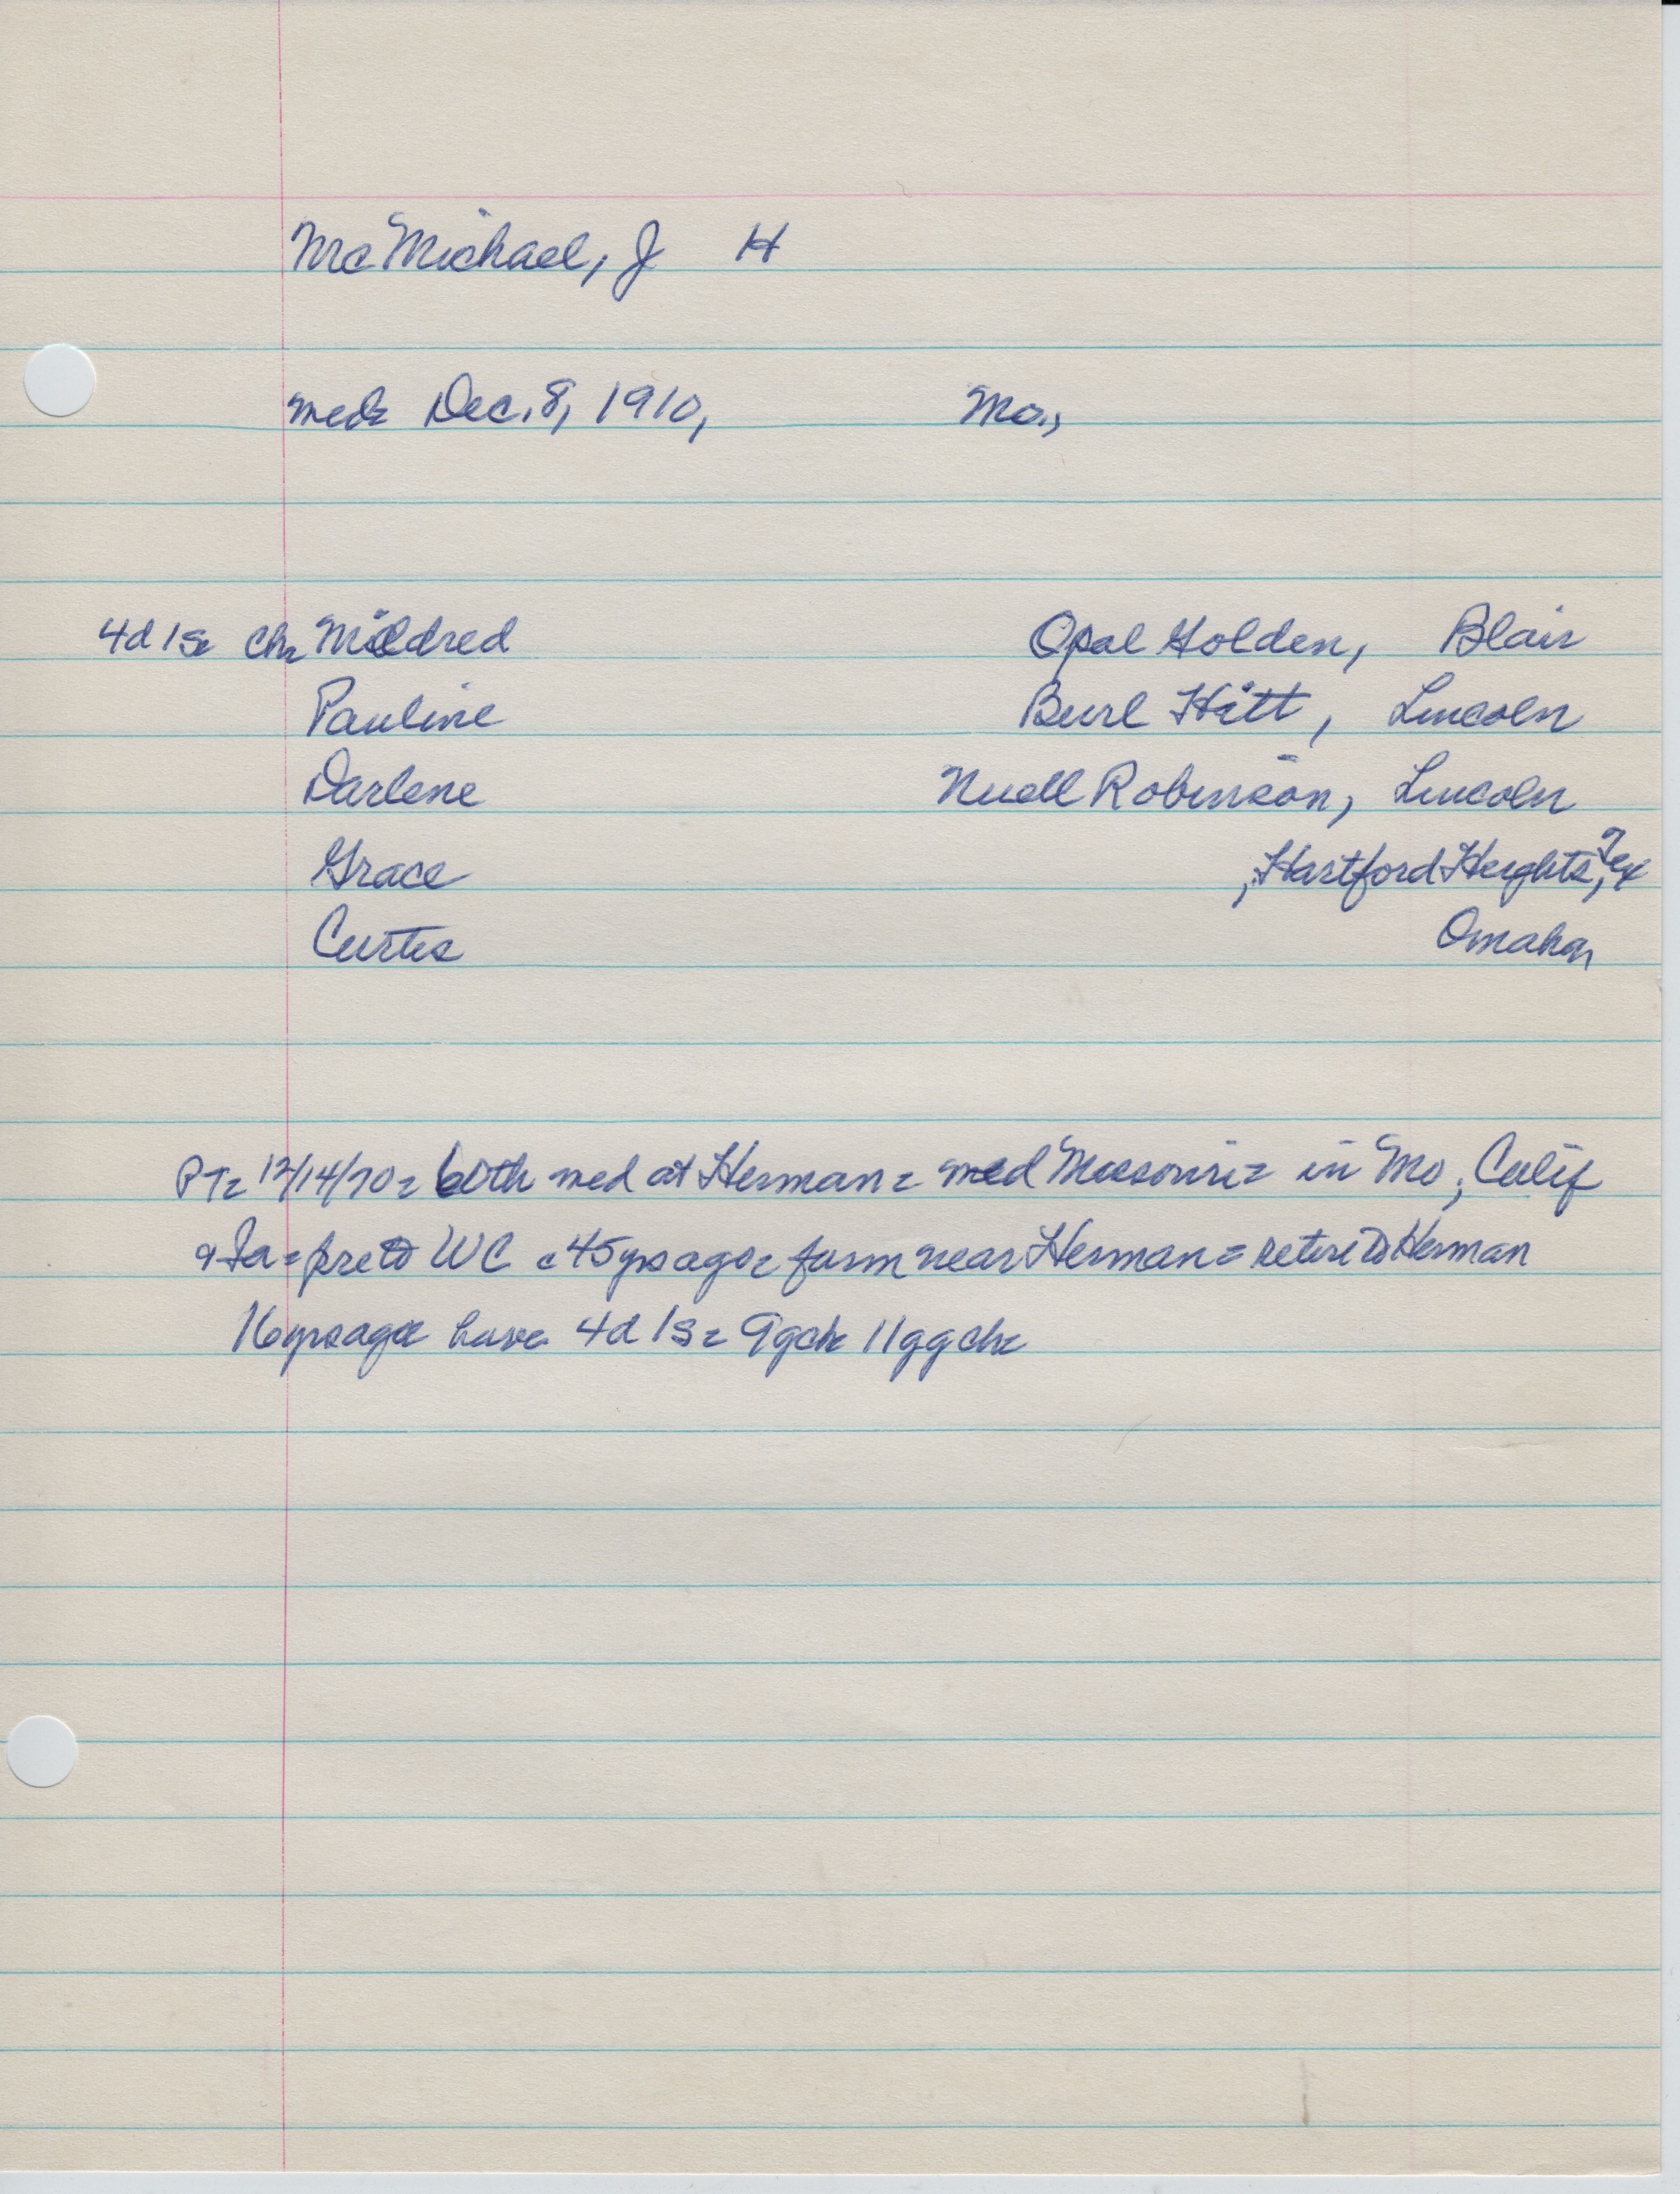 McMichael, J H
med= Dec. 8, 1910, Mo.,
4d 1s= ch= Mildred Opal Golden, Blair
Pauline Burl Hitt, Lincoln
Darlene Nuell Robinson, Lincoln
Grace , Hartford Heights, Tex
Curtis Omaha,
PT= 12/14/70= 60th wed at Herman= med Missouri= in Mo, Calif
& Ia= pre to WC = 45 yrs ago= farm near Herman= retire to Herman
16 yrs ago= have 4d 1s= 9gch 11ggch=